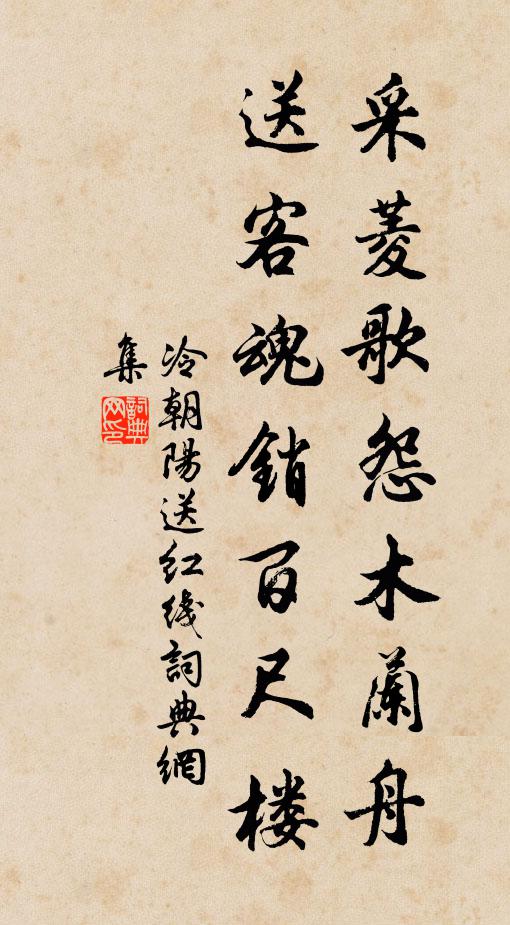 采菱歌怨木蘭舟
送客魂銷百尺楼
冷朝陽送红线詞典網
集
詞典網印